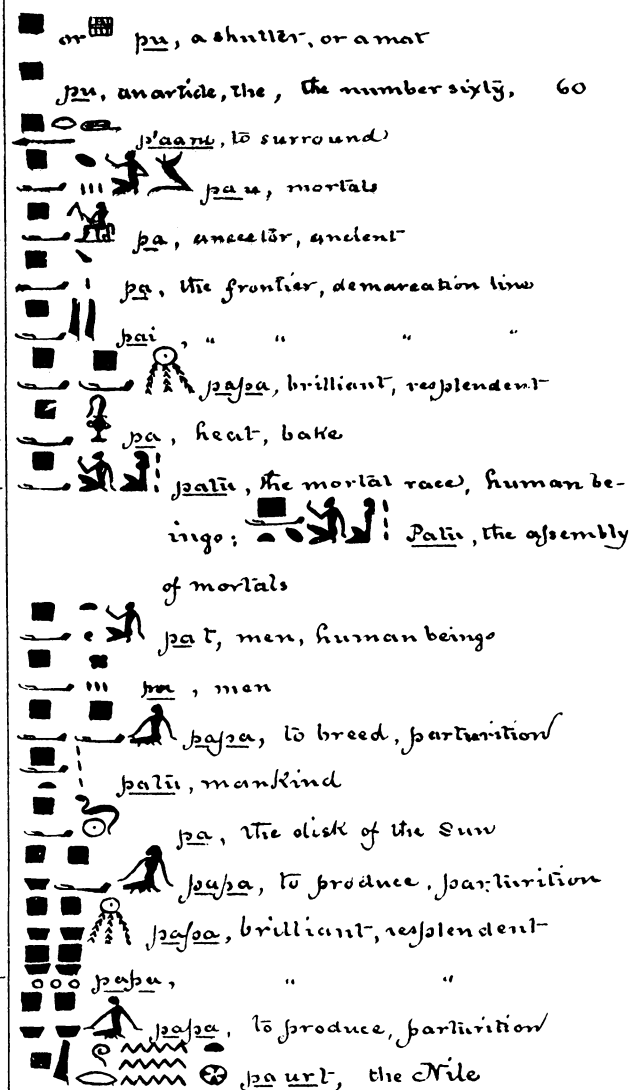 or pu, a shutter, or a mat
pu, an article, the, the number sixty, 60
p'aanu, to surround
pau, mortals
pa, ancestor, ancient
pa, the frontier, demarcation line
pai, " " " "
papa, brilliant, resplendent
pa, heat, bake
patu, the mortal race, human be-
ings; Patu, the assembly
of mortals
pat, men, human beings
pa, men
papa, to breed, parturition
patu, mankind
pa, the disk of the Sun
papa, to produce, parturition
papa, brilliant, resplendent
papa, " "
papa, to produce, parturition
pa urt, the Nile